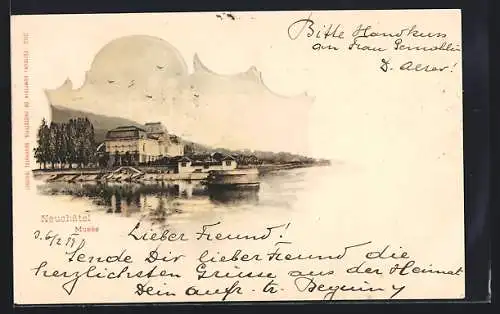 Bitte Handkuss
an Frau Gemahlin
D. Aeser!
Neuchâtel
Musée
Lieber Freund!
Sende Dir lieber Freund die
herzlichsten Grüsse aus der Heimat
Dein aufr. tr.